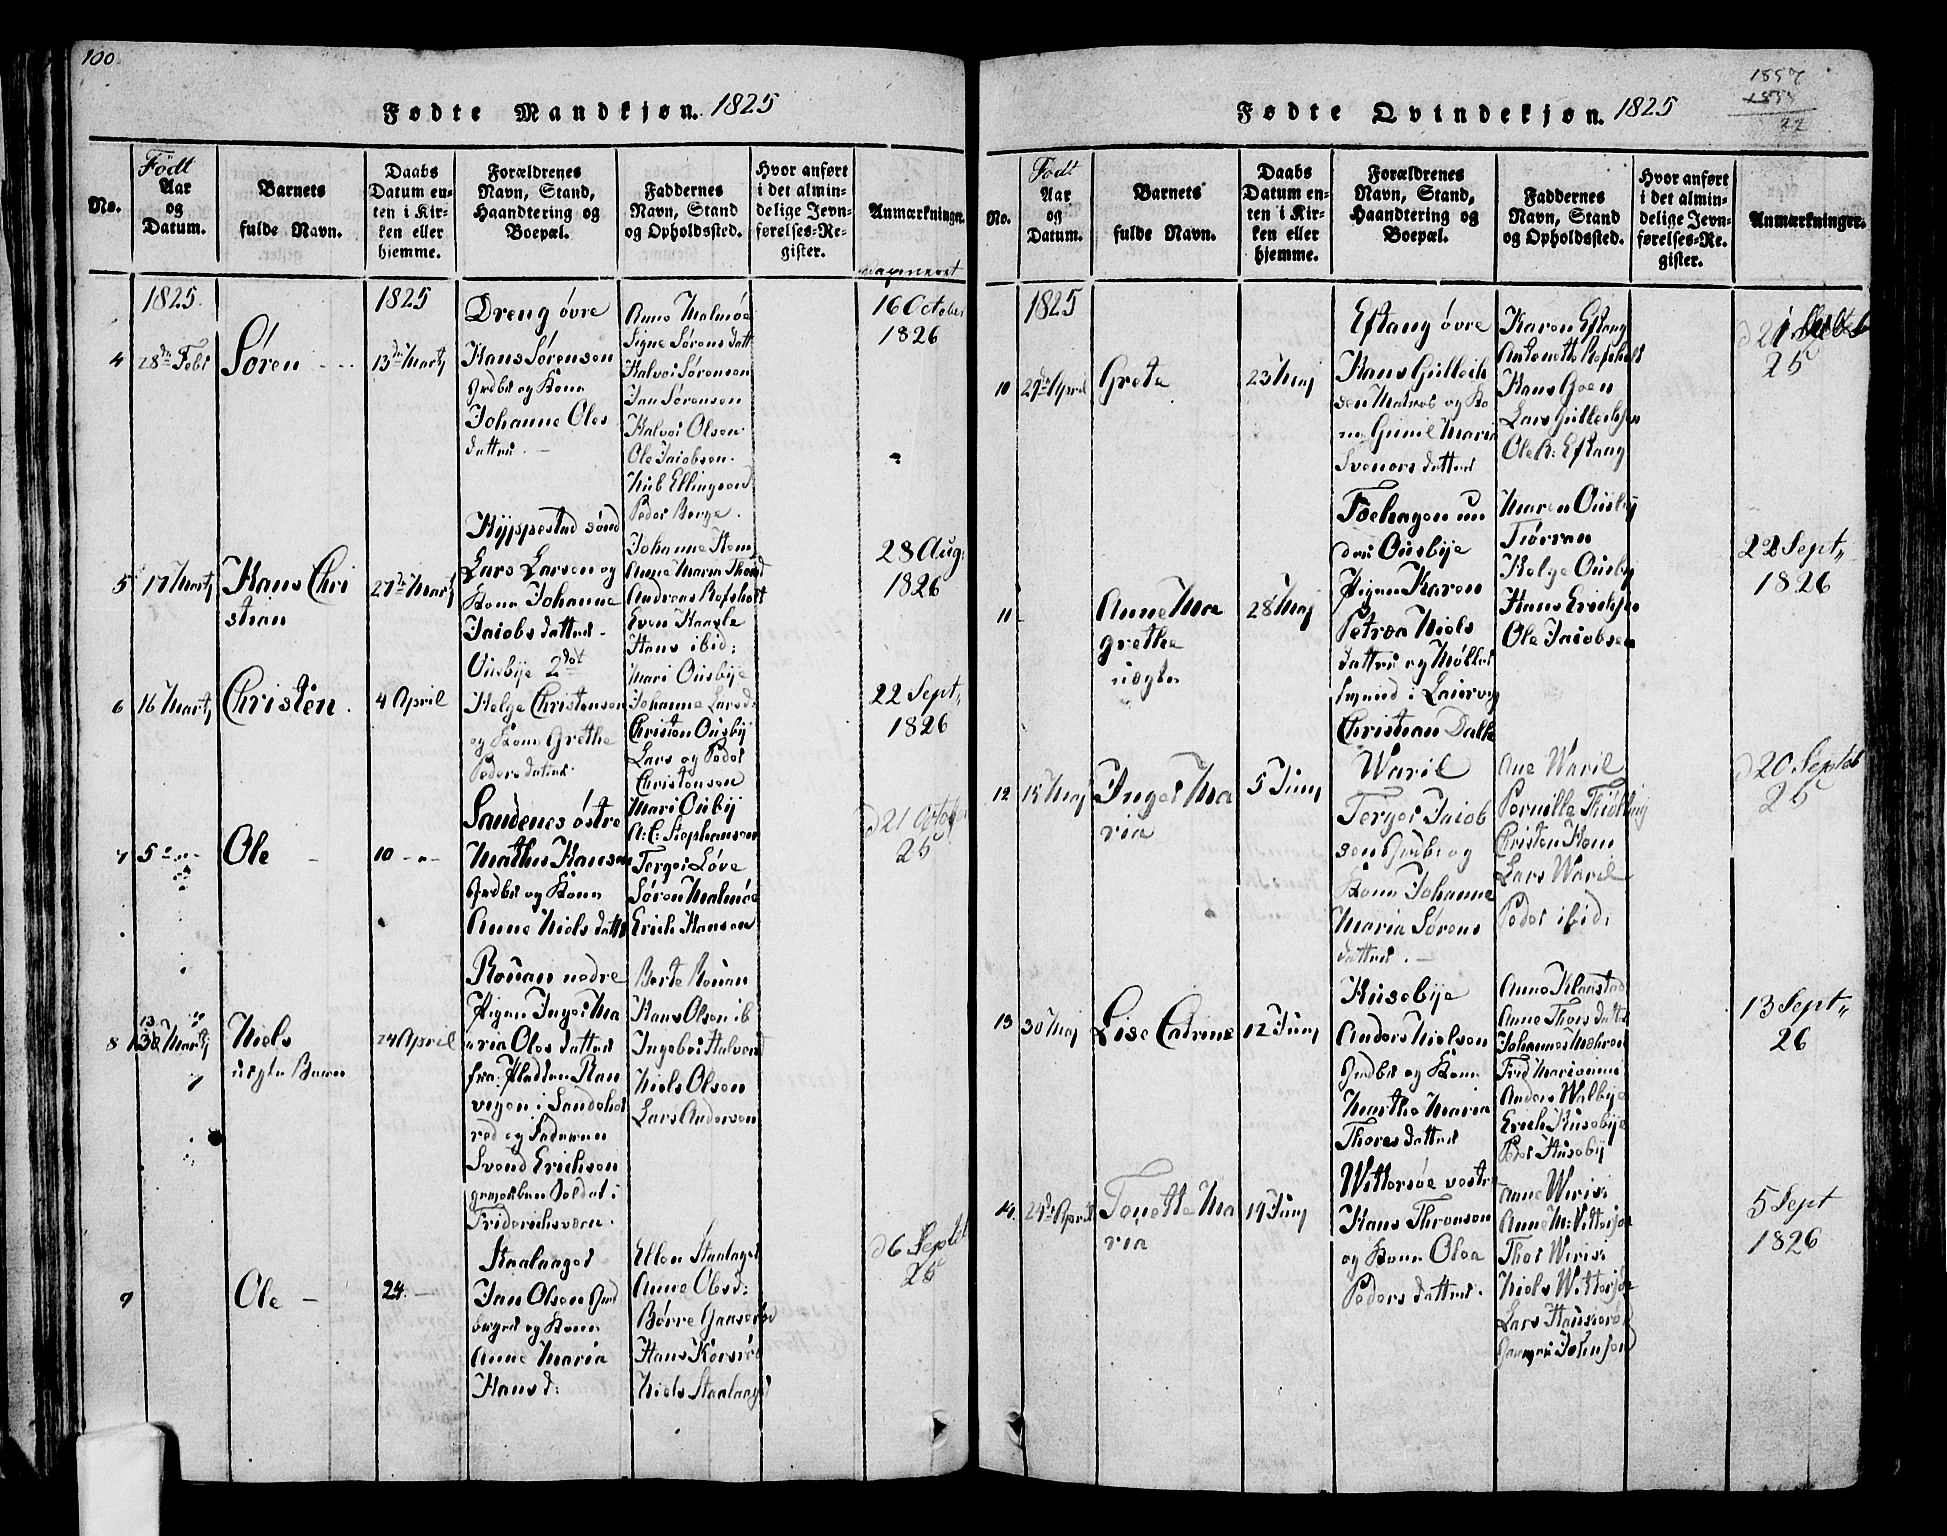 100
Fødte Mandkjøn. 1825
No.
Født
Aar
og
Datum.
Barnets
fulde Navn.
Daabs
Datum en-
ten i Kir-
ken eller
hjemme.
Forældrenes
Navn, Stand,
Haandtering og
Boepæl.
Faddernes
Navn, Stand
og Opholdssted.
Hvor anført
i det almin-
delige Jevn-
førelses-Re-
gister.
Anmærkninger.
1825.
4
28de Febr
Søren
1825
13de Marty
Dreng øvre
Hans Sørensen
Grdbr og Kone
Johanne Oles
datter.
Anne Malmøe
Signe Sørensdatt
Halvor Sørensen
Jan Sørensen
Halvor Olsen
Ole Jacobsen.
Nub Ellingsen
Peder Berge.
16 October
1826
5
17 Marty
Hans Chri
stian
27de Marty
Kyppestad sønd
Lars Larsen og
Kone Johanne
Jacobs datter
Johanne Hem
Anne Maria Thord
Andreas Refsholt
Even Haasle
Hans ibid:
28 Aug.
1826
6
16 Marty
Christen.
4 April
Ousbye 2det
Helge Christensen
og Kone Grethe
Peders datter
Mari Ousbye
Johanne Larsd.
Christen Ousby
Lars og Peder
Christensen
22 Sept,,
1826
7
5
Ole
10
Sandenes østre
Mathis Hansen
Grdbr og Kone
Anne Niels datter
Mari Ousby
A. C. Stephansen
Terger Løve
Søren Malmøe
Erich Hansen
d 21 Octob
25
8
13
Marty
Niels
uægte Barn
24 April
Rouan nedre
Pigen Inger Ma
ria Oles datter
fra Pladsen Ran
vigen i Sandeher
red og Faderen
Svend Erichsen
gevorben Soldat i
Friderichsværn.
Berte Rouan
Hans Olsen ib
Ingebor Halvors
Niels Olsen
Lars Andersen
9
Ole
24
Staalaager
Jan Olsen Grd
bruger og Kone
Anne Maria
Hans d:
Ellen Staalager
Anne Olesd:
Børre
Hans
Niels Staalaager
d 6 Septb
25
Fødte Qvindekjøn. 1825
1857
22
No.
Født
Aar
og
Datum.
Barnets
fulde Navn.
Daabs
Datum en-
ten i Kir-
ken eller
hjemme.
Forældrenes
Navn, Stand,
Haandtering og
Boepæl.
Faddernes
Navn, Stand
og Opholdssted.
Hvor anført
i det almin-
delige Jevn-
førelses-Re-
gister.
Anmærkninger.
1825
10
29de April
Grete
23 Maj
Eftang øvre
Hans Gullich
sen Matros og Ko
ne Gunil Maria
Svenors datter
Karen Eftang
Antonette Refsholt
Hans Goen
Lars Gullichsen
Ole R. Eftang
25
11
Anne Ma
grethe
uægte
28 Maj
Foehagen un
der Ousbye
Pigen Karen
Petrea Niels
datter og Møller
svend i Laurvig
Christian Dalh
Maren Ousby
Tiørren
Helge Ousby
Hans Erichsen
Ole Jacobsen
22 Sept,,
1826
12
15 Maj
Inger Ma
ria
5 Juny
Waril
Terger Jacob
sen Grdbr og
Kone Johanne
Maria Sørens
datter.
Ane Waril
Pernille Thiølling
Christen Hem
Lars Waril
Peder ibid:
d 20 Septb
25
13
30 Maj
Lise Catrine
12 Juny
Husebye
Anders Nielsen
Grdbr og Kone
Marthe Maria
Thores datter
Anne Klaastad
Anne Thors datter
Johannes
Fred
Anders Walbye
Erich Husebye
Peder Huseby
13 Sept,,
26
14.
24de April
Tonette Ma
ria
19 Juny
Wittersøe vestre
Hans Thronsen
og Kone Olea
Peders datter.
Anne Wirisi
Anne M. Vittersøe
Thor Wirisi
Niels Wittersøe
Lars
Johnsen
5 Sept
1826